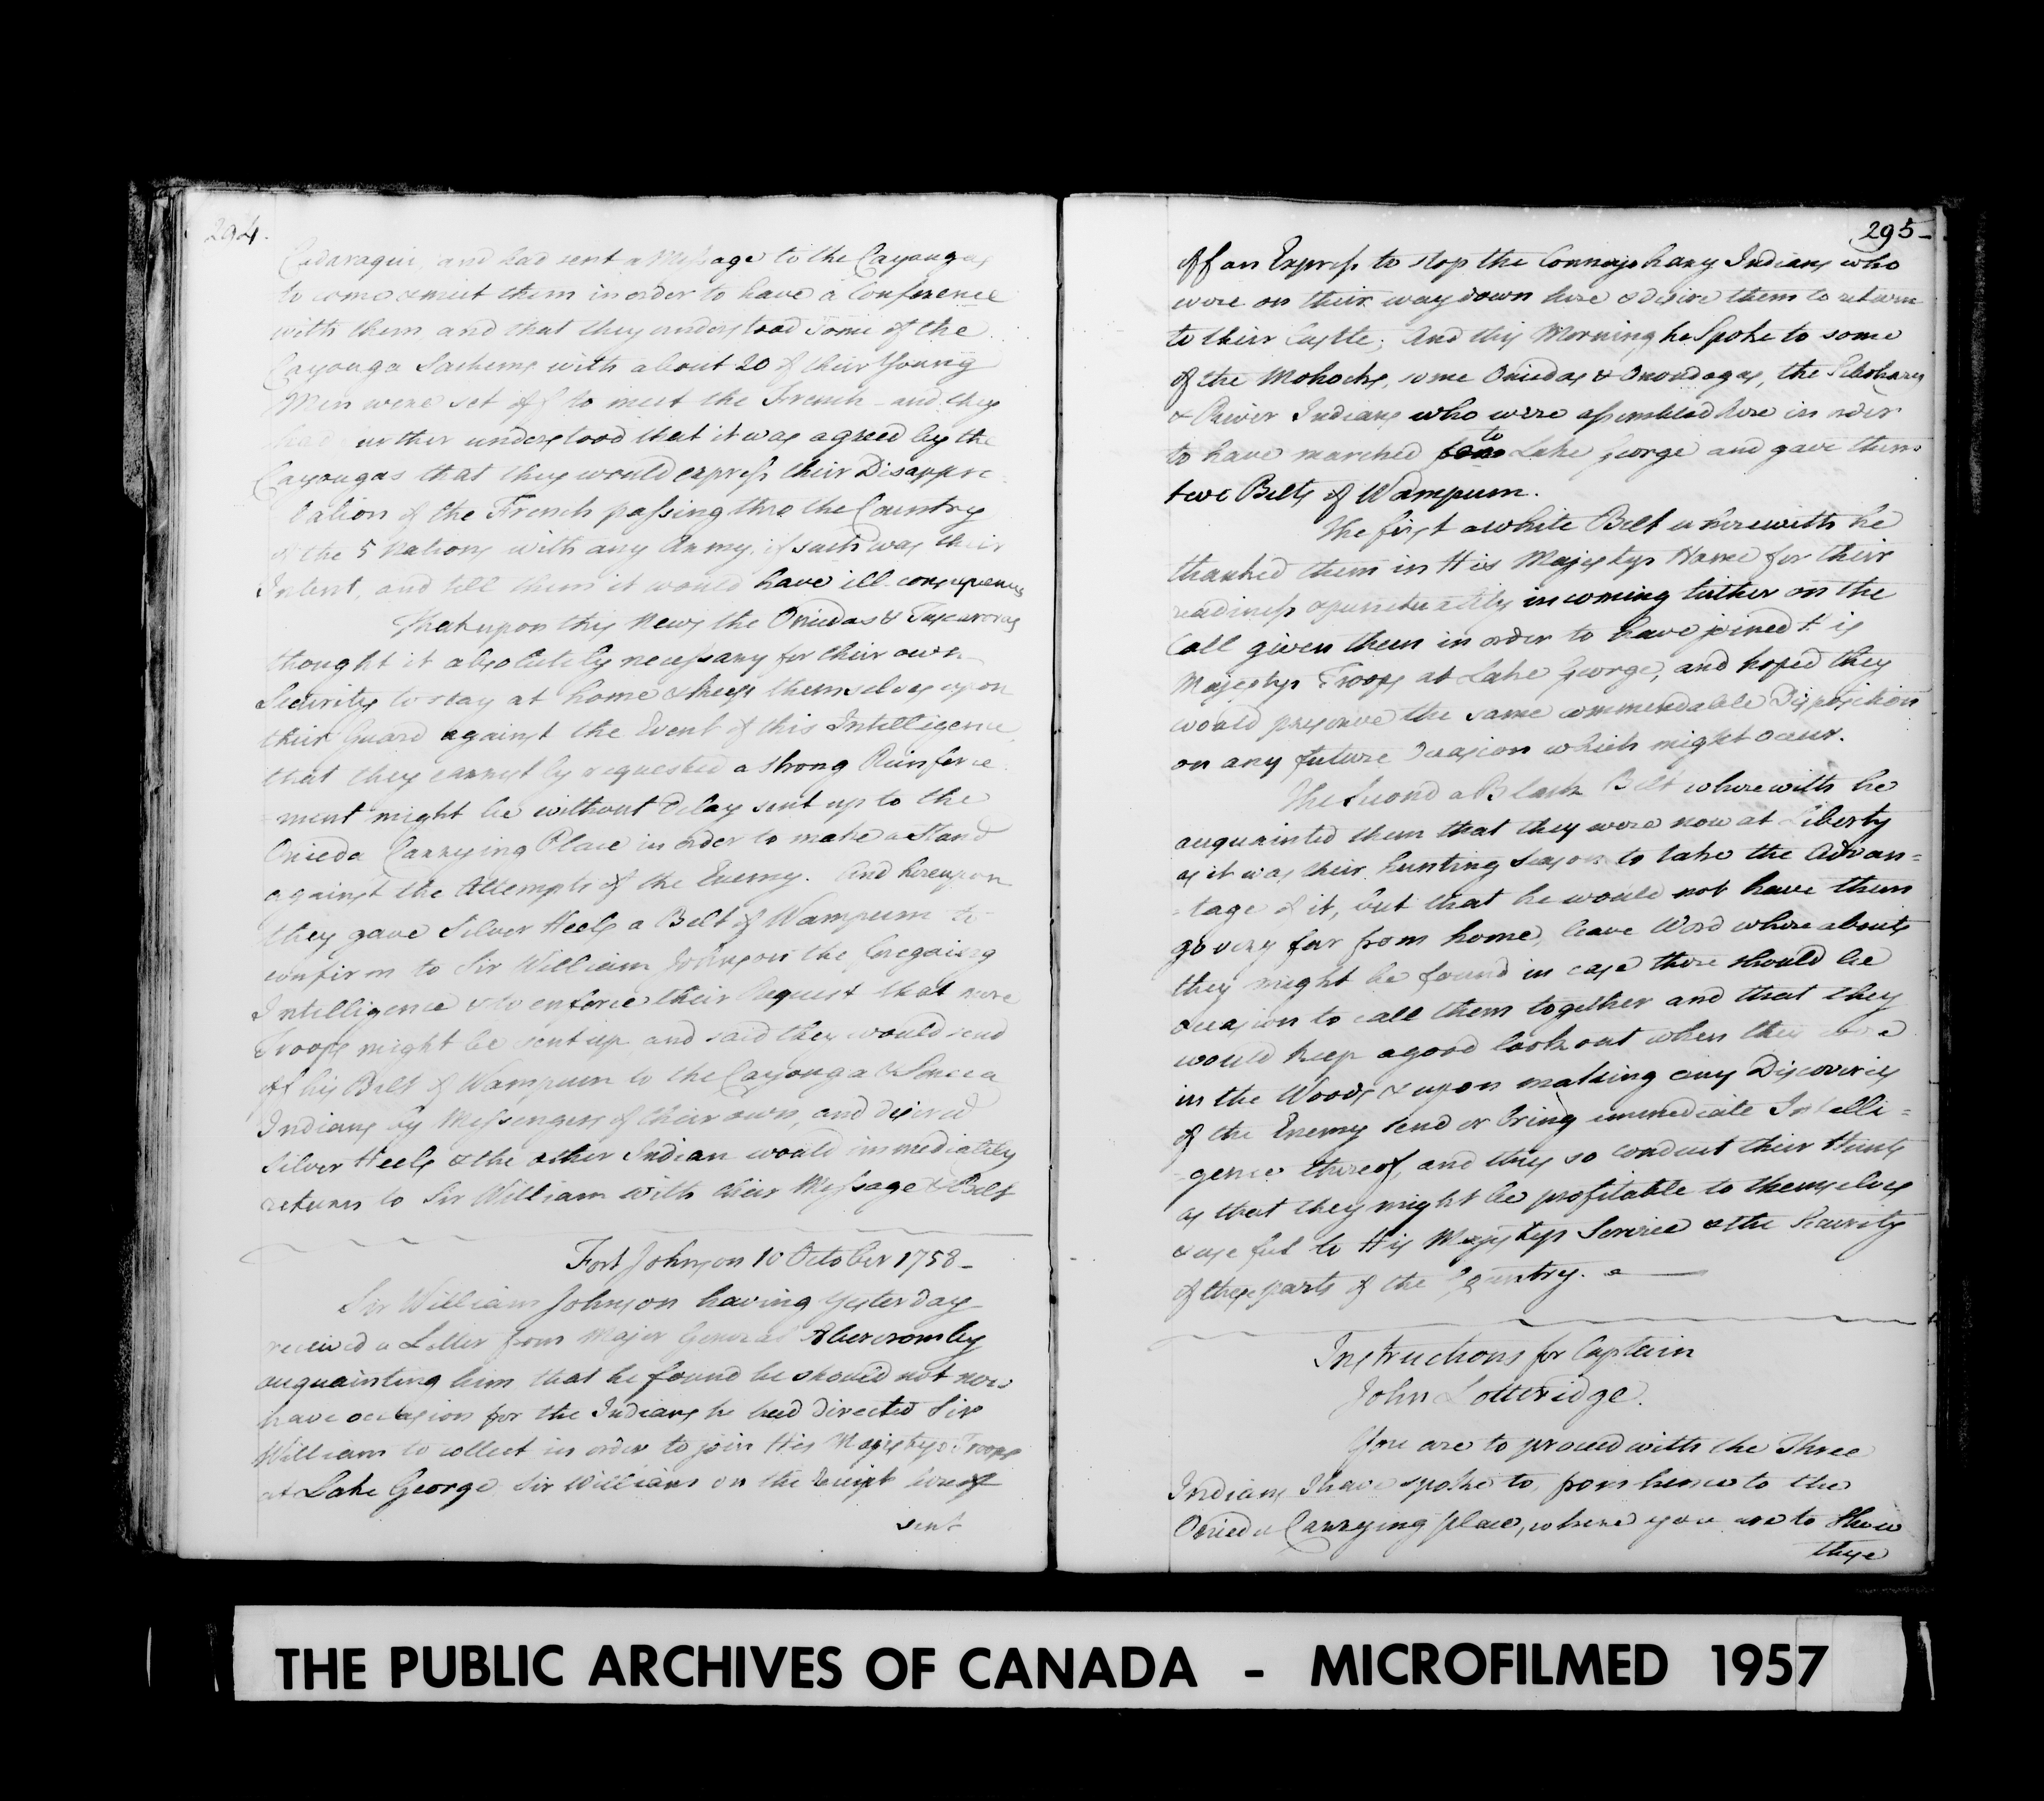 294.
Cadaraqui, and had sent a Message to the Cayougas
to come & meet them in order to have a Conference
with them, and that they understood some of the
Cayouga Sachems with about 20 of their Young
Men were set off to meet the French - and they
had further understood that it was agreed by the
Cayougas that they would express their Disappro
bation of the French passing thro the Country
of the 5 Nations with any Army, if such was their
Intent, and tell them it would have ill consequences
That upon this News the Oniedas & Tuscaroras
thought it absolutely necessary for their own
Security to stay at home & keep themselves upon
their Guard against the Event of this Intelligence,
that they earnestly requested a strong Reinforce
ment might be without Delay sent up to the
Onieda Carrying Place in order to make a Stand
against the Attempts of the Enemy. And hereupon
they gave Silver Heels a Belt of Wampum to
confirm to Sir William Johnson the foregoing
Intelligence & to enforce their Request that more
Troops might be sent up and said they would send
off his Belt of Wampum to the Cayouga & Seneca
Indians by Messengers of their own, and desired
Silver Heels & the other Indian would immediately
return to Sir William with their Message & Belt
Fort Johnson 10 October 1758 -
Sir William Johnson having Yesterday
received a Letter from Major General Abercromby
acquainting him that he found he should not now
have occasion for the Indians he had directed Sir
William to collect in order to join His Majestys Troops
at Lake George Sir William on the receipt hereof
sent
295 -
off an Express to stop the Connajohary Indians who
were on their way down here & desire them to return
to their Castle; And this Morning he Spoke to some
of the Mohocks, some Oniedas & Onondagas, the Schohary
& River Indians who were assembled here in order
to have marched to Lake George and gave them
two Belts of Wampum.
The first a white Belt wherewith he
thanked them in His Majestys Name for their
readiness & punctuality in coming hither on the
Call given them in order to have joined His
Majestys Troops at Lake George, and hoped they
would preserve the same commendable Disposition
on any future Occasion which might occur.
The Second a Black Belt wherewith he
acquainted them that they were now at Liberty
as it was their hunting Season to take the Advan=
=tage of it, but that he would not have them
go very far from home, leave Word whereabouts
they might be found in case there should be
occasion to call them together and that they
would keep a good look out when they were
in the Woods & upon making any Discoveries
of the Enemy send or bring immediate Intelli=
gence thereof, and they so conduct their Hunts
as that they might be profitable to themselves
& useful to His Majestys Service & the Security
of these parts of the Country.
Instructions for Captain
John Lotteridge.
You are to proceed with the Three
Indians I have spoke to, from hence to the
Onieda Carrying place, where you are to Shew
these
THE PUBLIC ARCHIVES OF CANADA - MICROFILMED 1957